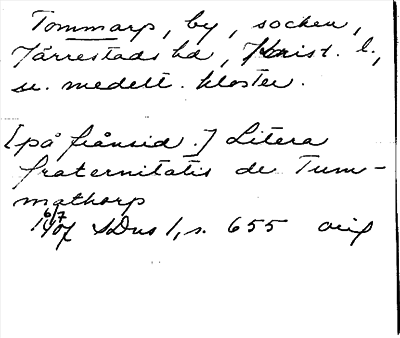 Tommarp, by, socken,
Järrestads hd, Krist. l.,
se. medelt. kloster.
[på frånsid.] Litera
fraternitatis de Tum-
mathorp
6/7 1407 SDns 1, s. 655 orig